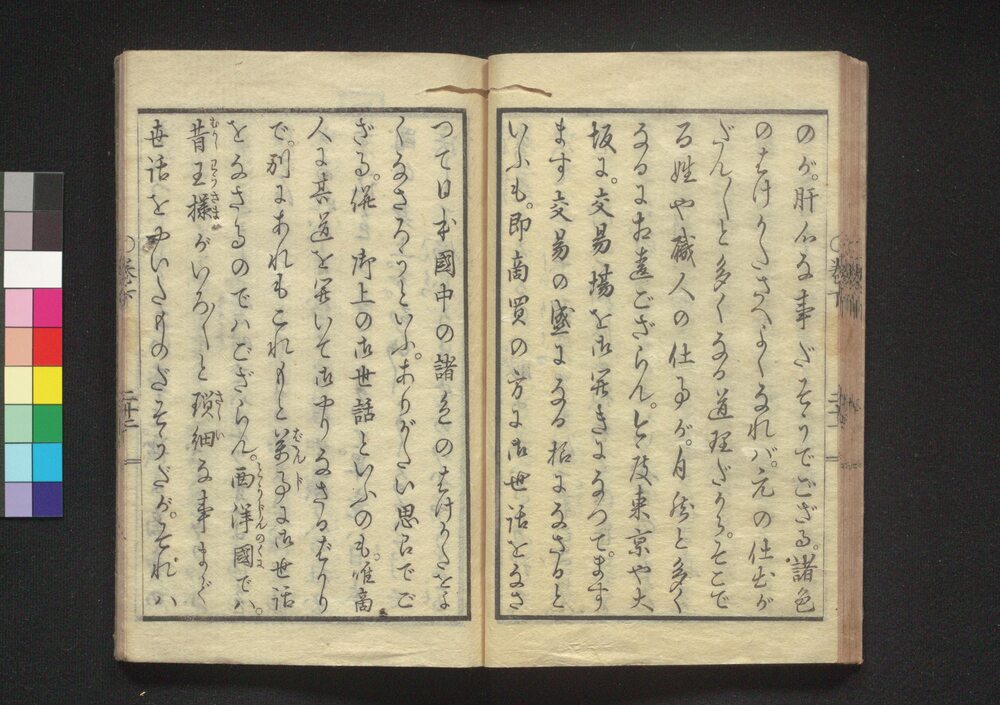 のが。肝心な事ださうでござる。諸色
のはけかたさへよくなれバ。元の仕出が
だん〳〵と多くなる道理だから。そこで
百姓や職人の仕事が。自然と多く
なるに相違ござらん。今度東京や大
坂に。交易場を御開きになつて。ます
ます交易の盛になる様になさると
いふも。即商買の方に御世話をなさ
つて日本國中の諸色のはけかたをよ
くなさろうといふ。ありがたい思召でご
ざる。併し御上の御世話といふのも。唯商
人に其道を開いて御やりなさるばかり
で。別にあれもこれもと萬事に御世話
をなさるのでハござらん。西洋國でハ。
昔王様がいろ〳〵と瑣細な事まで
世話をやいたものださうだが。それハ
巻下
二十二